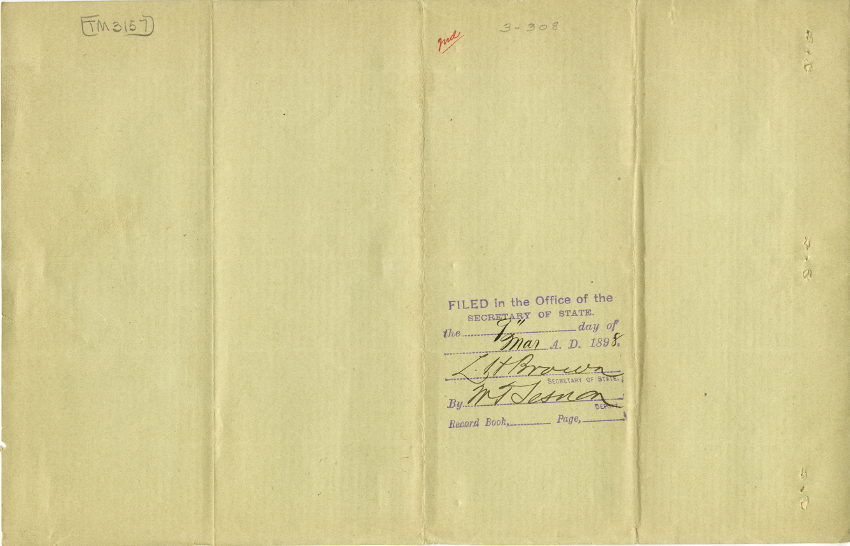 TM 3157
3-308
FILED in the Office of the
SECRETARY OF STATE.
the 7" day of
Mar A. D. 1898.
L. H Brown
SECRETARY OF STATE.
By W T
DEPUTY.
Record Book, Page,